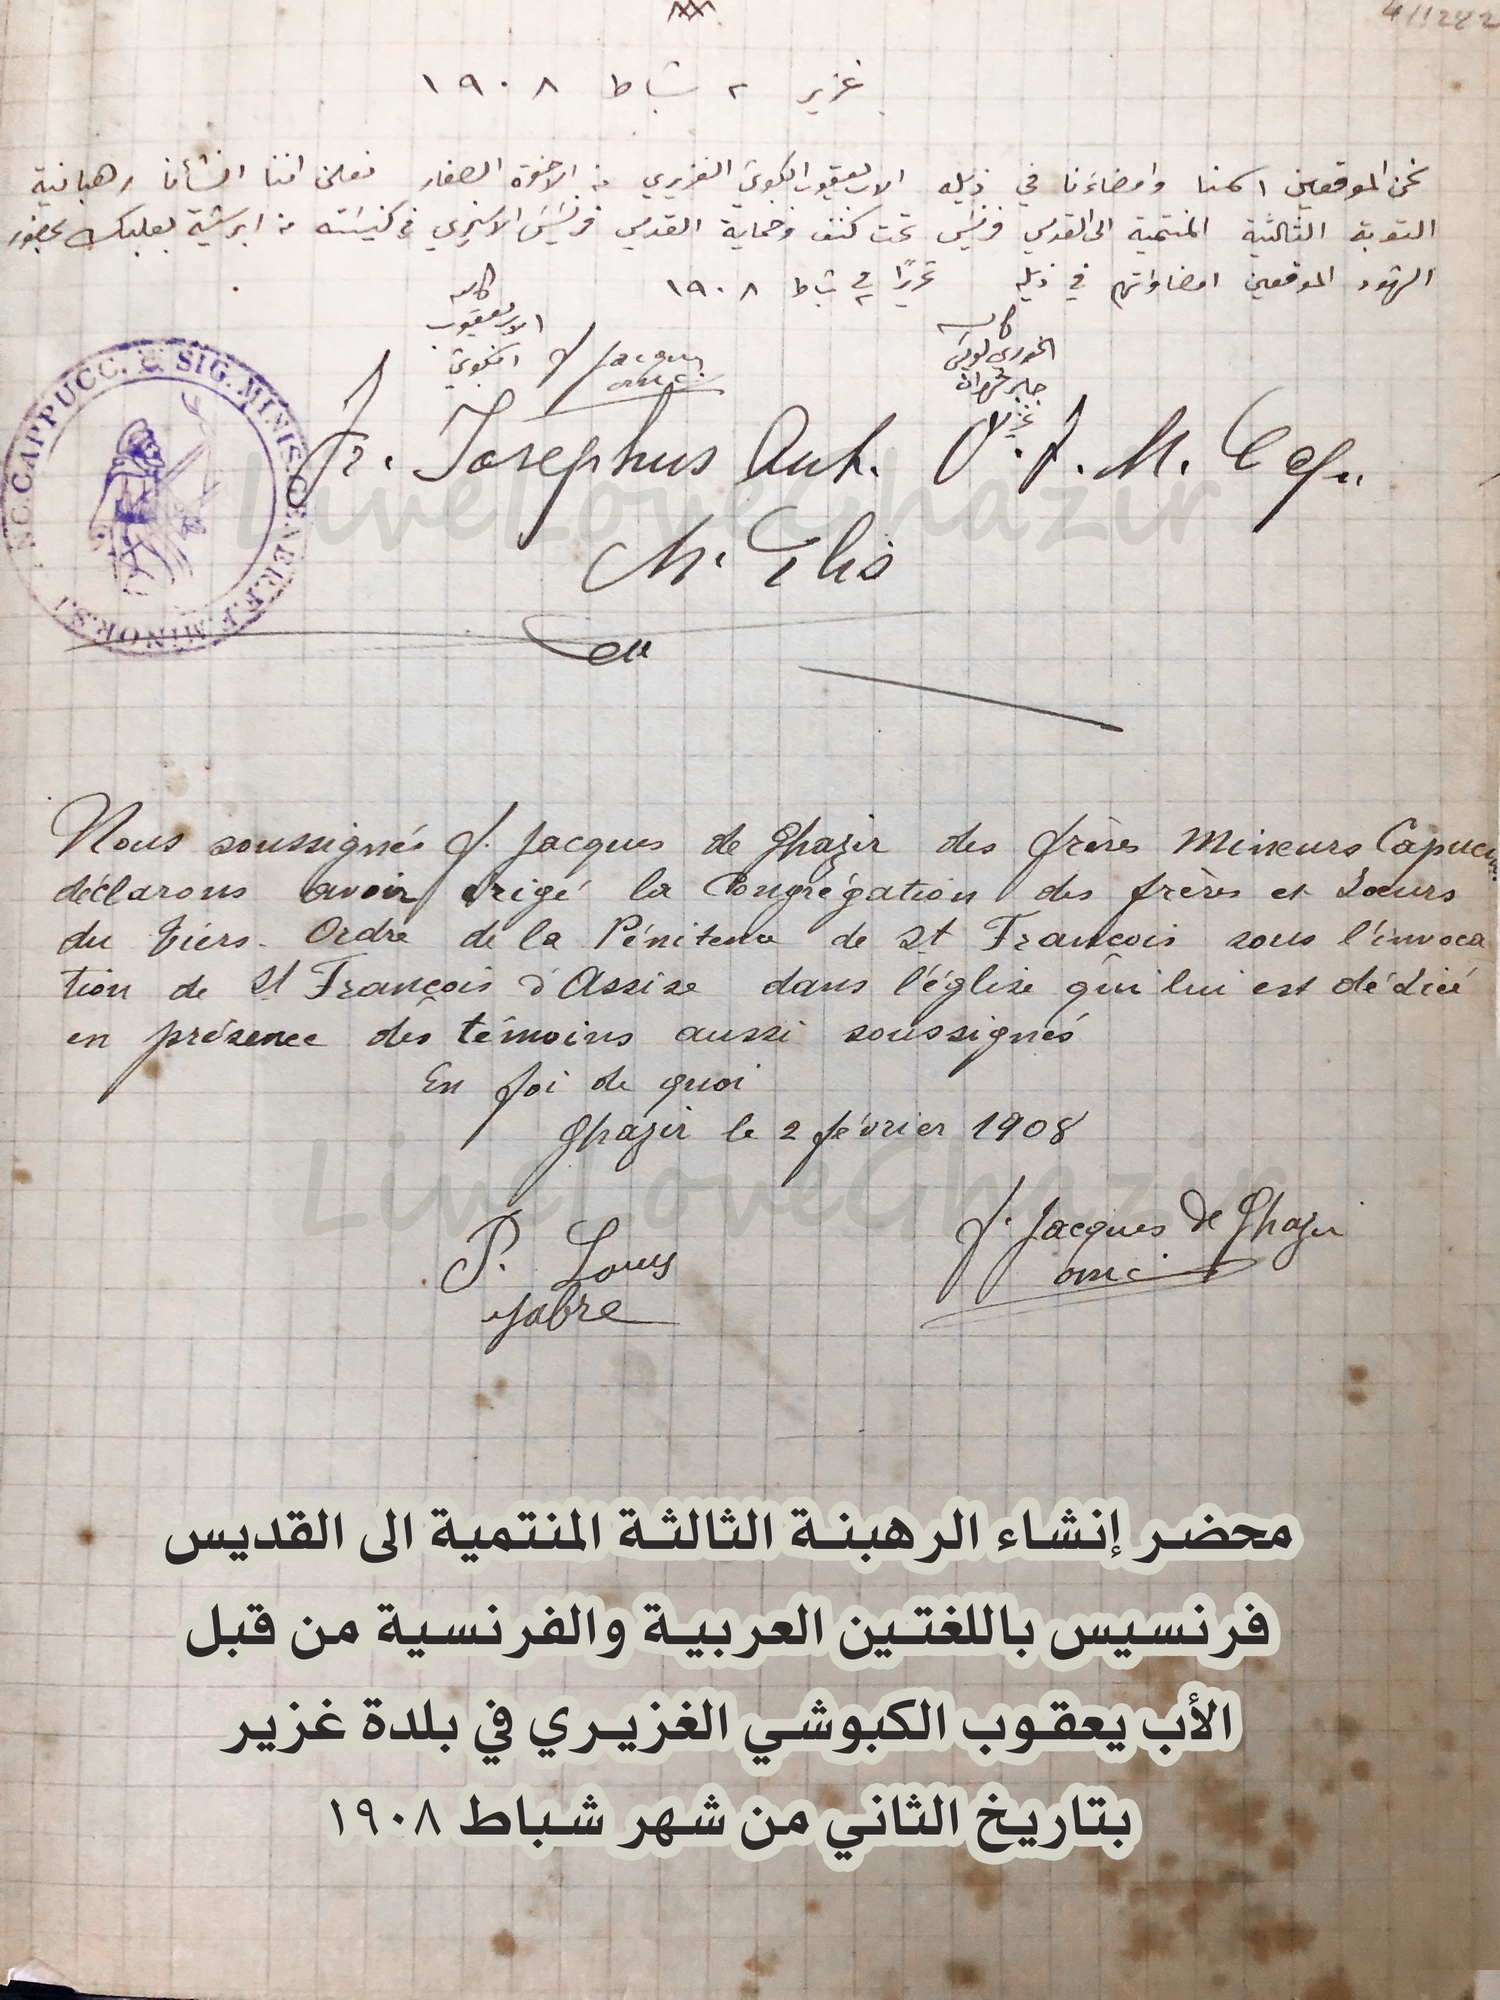 4/1282
غزير ٢ شباط ١٩٠٨
نحن الموقعين اسمنا وامضاءنا في ذيله الاب يعقوب الكبوشي الغزيري من الاخوة الصغار نعلن اننا انشأنا رهبانية
التوبة الثالثية المنتمية الى القديس فرنسيس تحت كنف وحماية القديس فرنسيس الاسيزي في كنيسته من ابرشية بعلبك بحضور
الشهود الموقعين امضاواتهم في ذيله تحريرًا في ٢ شباط ١٩٠٨
كاتبه
الاب يعقوب
الكبوشي
f Jacques
omc
كاتبه
الخوري لويس
جابر
غزير
Fr. Josephus Ant. O.F.M. Cap.
M. Elis
CAPPUCC. & SIG. MINIS. FF. MINOR. S.
LiveLoveGhazir
Nous soussignés f. Jacques de Ghazir des frères Mineurs Capucins
déclarons avoir érigé la Congrégation des frères et Sœurs
du tiers-Ordre de la Pénitence de St François sous l'invoca
tion de St François d'Assise dans l'église qui lui est dédiée
en présence des témoins aussi soussignés
En foi de quoi
Ghazir le 2 février 1908
LiveLoveGhazir
P. Louis
Jabre
f. Jacques de Ghazir
omc
محضر إنشاء الرهبنة الثالثة المنتمية الى القديس
فرنسيس باللغتين العربية والفرنسية من قبل
الأب يعقوب الكبوشي الغزيري في بلدة غزير
بتاريخ الثاني من شهر شباط ١٩٠٨